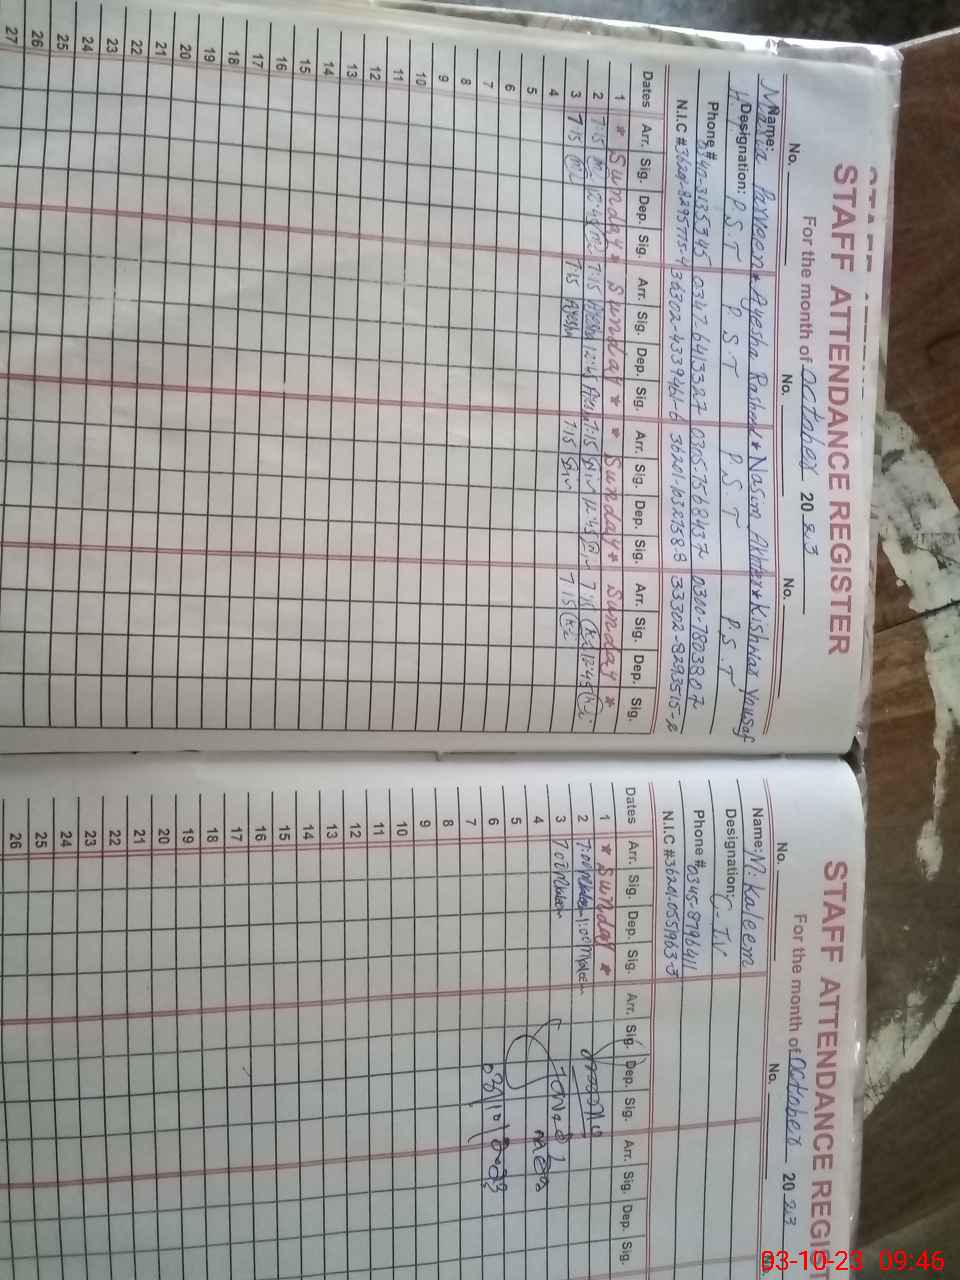 STAFF ATTENDANCE REGISTER
For the month of October 2023
No. No. No.
Name: Parveen * Ayesha Rashid * Nasim Akhter * Kishwar Yousaf
Designation: P.S.T P.S.T P.S.T P.S.T
Phone # 0347-6413327 0305-7568437 0300-7803807
N.I.C #
Dates Arr. Sig. Dep. Sig. Arr. Sig. Dep. Sig. Arr. Sig. Dep. Sig. Arr. Sig. Dep. Sig.
1 * Sunday * Sunday * * Sunday * Sunday *
2 7:15 12:45 7:15 Ayesha 12:45 7:15 12:45 7:15 12:45
3 7:15 7:15 Ayesha 7:15 7:15
4
5
6
7
8
9
10
11
12
13
14
15
16
17
18
19
20
21
22
23
24
25
26
27
STAFF ATTENDANCE REGIST
For the month of October 2023
No. No. No.
Name: M. Kaleem
Designation: C-IV
Phone # 0345-8796411
N.I.C # 36201-0551963-3
Dates Arr. Sig. Dep. Sig. Arr. Sig. Dep. Sig. Arr. Sig. Dep. Sig.
1 * Sunday *
2 7:00 1:00
3 7:00
4
5
6
7
8
9
10
11
12
13
14
15
16
17
18
19
20
21
22
23
24
25
26
03-10-23 09:46